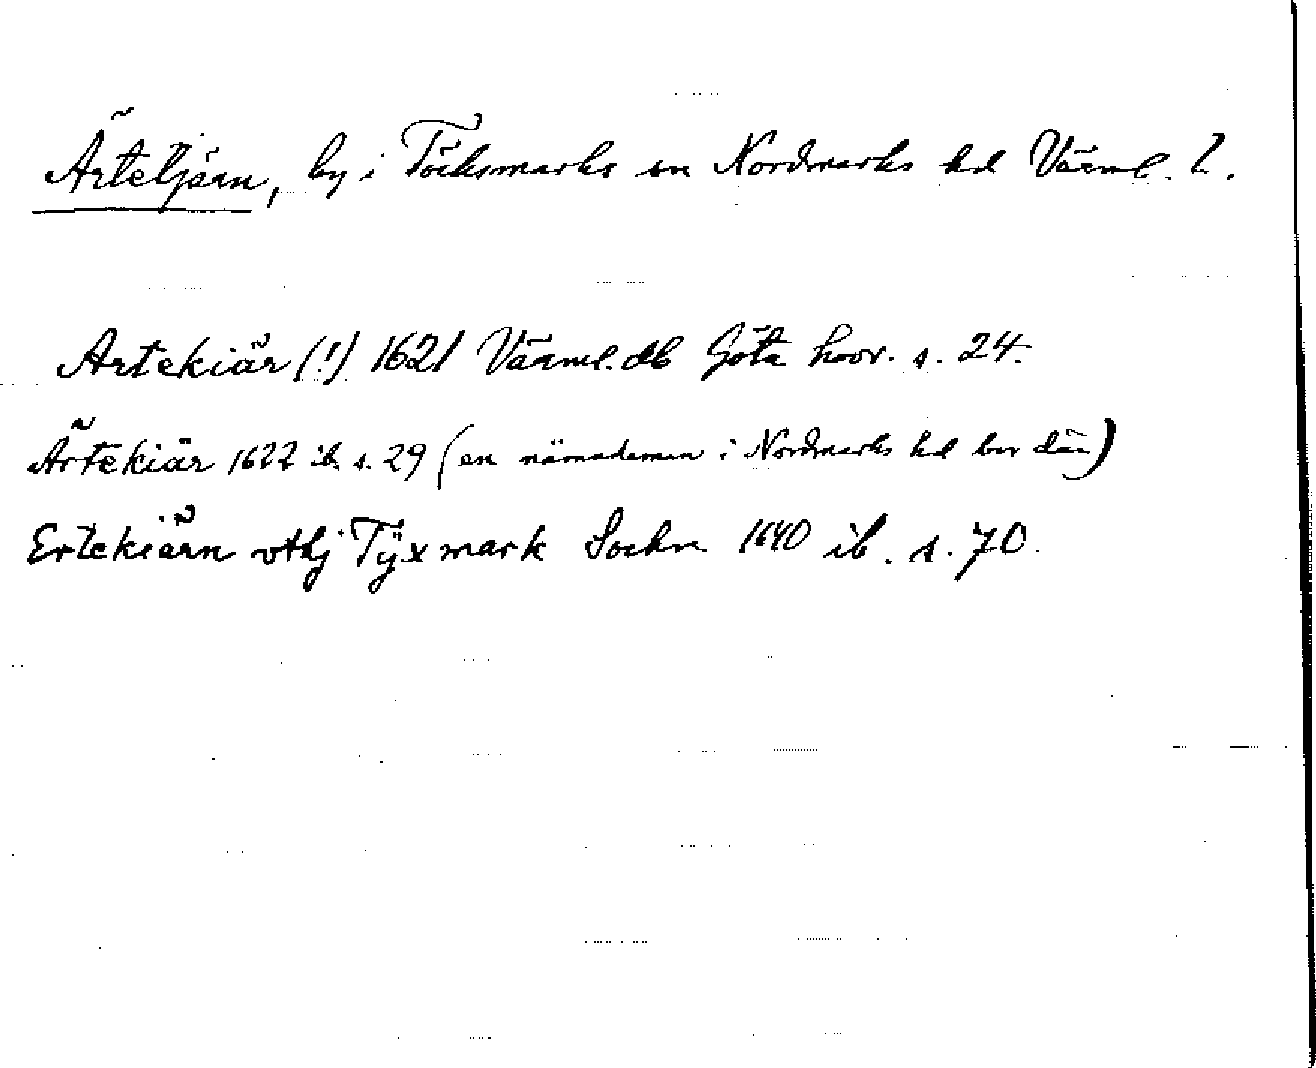 Ärteljärn, by i Töcksmarks sn Nordmarks hd Värml. l.
Artekiär (!) 1621 Värml. db Göta hovr. s. 24.
Ärtekiär 1622 ib. s. 29 (en nämndeman i Nordmarks hd bor där)
Ertekiärn vthj Tÿxmark Sochn 1640 ib. s. 70.